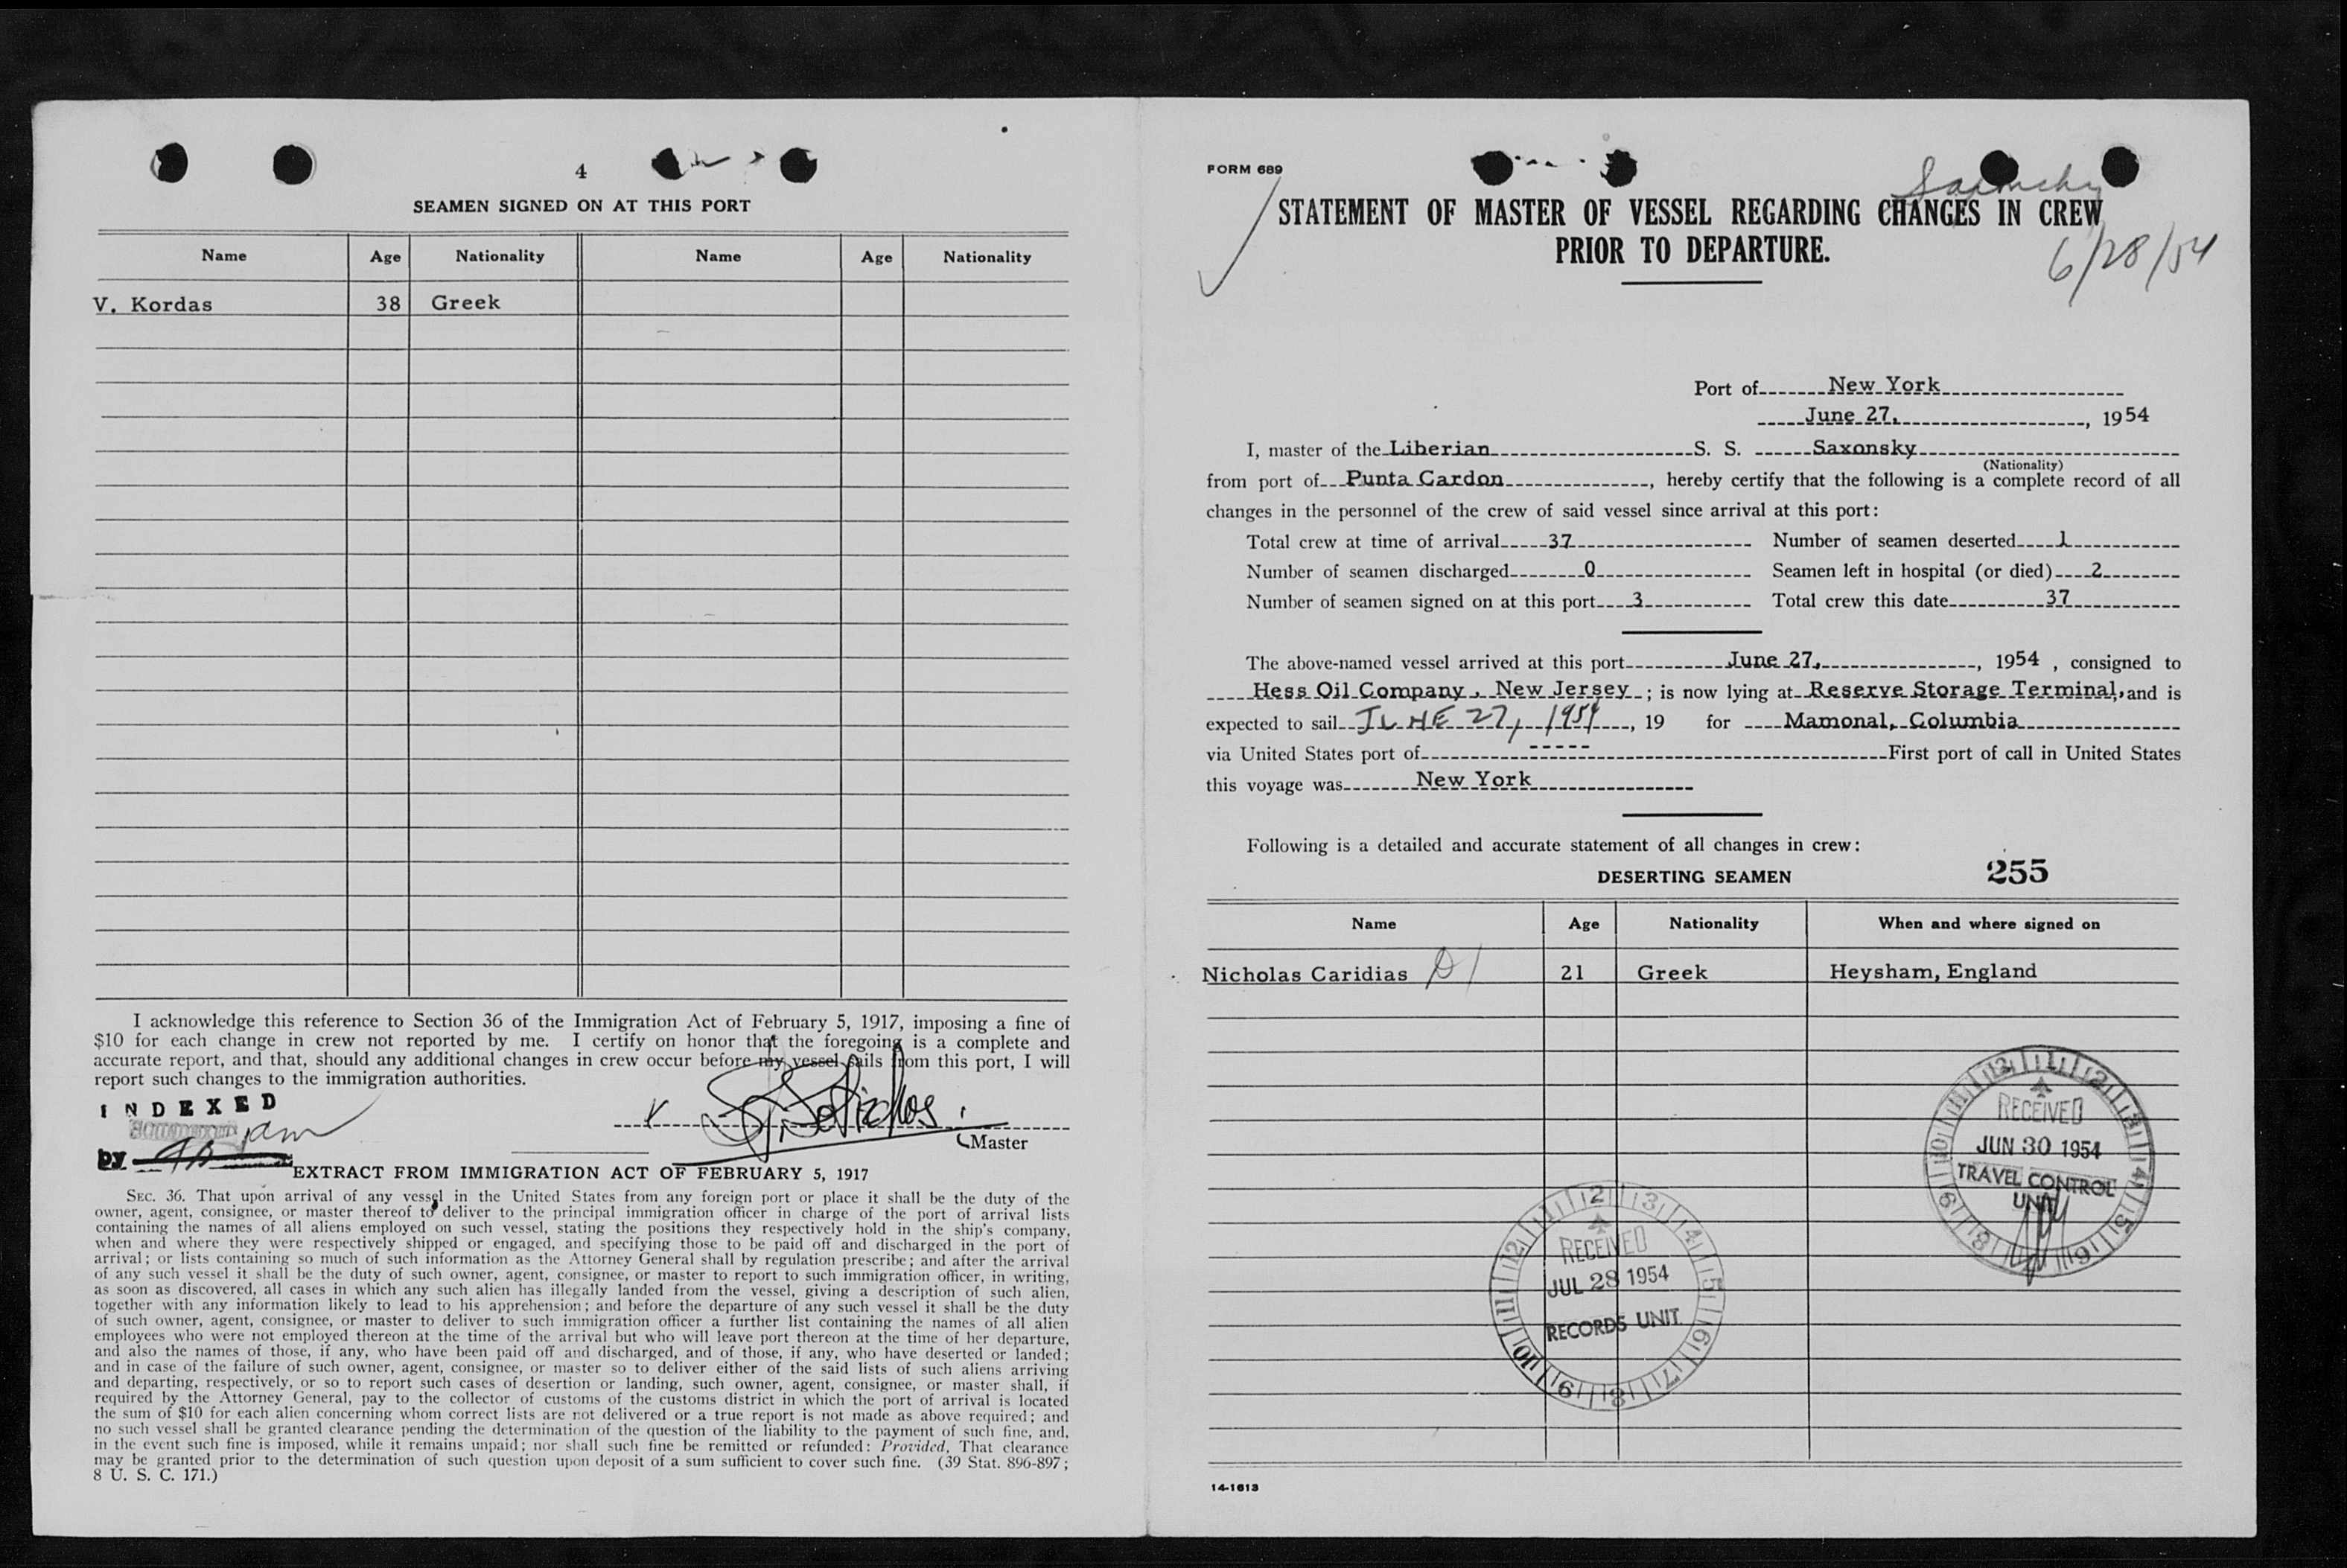 4
SEAMEN SIGNED ON AT THIS PORT
Name Age Nationality Name Age Nationality
V. Kordas 38 Greek
I acknowledge this reference to Section 36 of the Immigration Act of February 5, 1917, imposing a fine of
$10 for each change in crew not reported by me. I certify on honor that the foregoing is a complete and
accurate report, and that, should any additional changes in crew occur before my vessel sails from this port, I will
report such changes to the immigration authorities.
INDEXED
by
Master
EXTRACT FROM IMMIGRATION ACT OF FEBRUARY 5, 1917
SEC. 36. That upon arrival of any vessel in the United States from any foreign port or place it shall be the duty of the
owner, agent, consignee, or master thereof to deliver to the principal immigration officer in charge of the port of arrival lists
containing the names of all aliens employed on such vessel, stating the positions they respectively hold in the ship's company,
when and where they were respectively shipped or engaged, and specifying those to be paid off and discharged in the port of
arrival; or lists containing so much of such information as the Attorney General shall by regulation prescribe; and after the arrival
of any such vessel it shall be the duty of such owner, agent, consignee, or master to report to such immigration officer, in writing,
as soon as discovered, all cases in which any such alien has illegally landed from the vessel, giving a description of such alien,
together with any information likely to lead to his apprehension; and before the departure of any such vessel it shall be the duty
of such owner, agent, consignee, or master to deliver to such immigration officer a further list containing the names of all alien
employees who were not employed thereon at the time of the arrival but who will leave port thereon at the time of her departure,
and also the names of those, if any, who have been paid off and discharged, and of those, if any, who have deserted or landed;
and in case of the failure of such owner, agent, consignee, or master so to deliver either of the said lists of such aliens arriving
and departing, respectively, or so to report such cases of desertion or landing, such owner, agent, consignee, or master shall, if
required by the Attorney General, pay to the collector of customs of the customs district in which the port of arrival is located
the sum of $10 for each alien concerning whom correct lists are not delivered or a true report is not made as above required; and
no such vessel shall be granted clearance pending the determination of the question of the liability to the payment of such fine, and,
in the event such fine is imposed, while it remains unpaid; nor shall such fine be remitted or refunded: Provided, That clearance
may be granted prior to the determination of such question upon deposit of a sum sufficient to cover such fine. (39 Stat. 896-897;
8 U. S. C. 171.)
FORM 689
STATEMENT OF MASTER OF VESSEL REGARDING CHANGES IN CREW
PRIOR TO DEPARTURE.
6/28/54
Port of New York
June 27, , 1954
I, master of the Liberian S. S. Saxonsky
(Nationality)
from port of Punta Cardon , hereby certify that the following is a complete record of all
changes in the personnel of the crew of said vessel since arrival at this port:
Total crew at time of arrival 37 Number of seamen deserted 1
Number of seamen discharged 0 Seamen left in hospital (or died) 2
Number of seamen signed on at this port 3 Total crew this date 37
The above-named vessel arrived at this port June 27, , 1954 , consigned to
Hess Oil Company , New Jersey ; is now lying at Reserve Storage Terminal, and is
expected to sail JUNE 27, 1954 , 19 for Mamonal, Columbia
via United States port of ----- First port of call in United States
this voyage was New York
Following is a detailed and accurate statement of all changes in crew:
255
DESERTING SEAMEN
Name Age Nationality When and where signed on
Nicholas Caridias 21 Greek Heysham, England
RECEIVED
JUN 30 1954
TRAVEL CONTROL
UNIT
RECEIVED
JUL 28 1954
RECORDS UNIT
14-1613